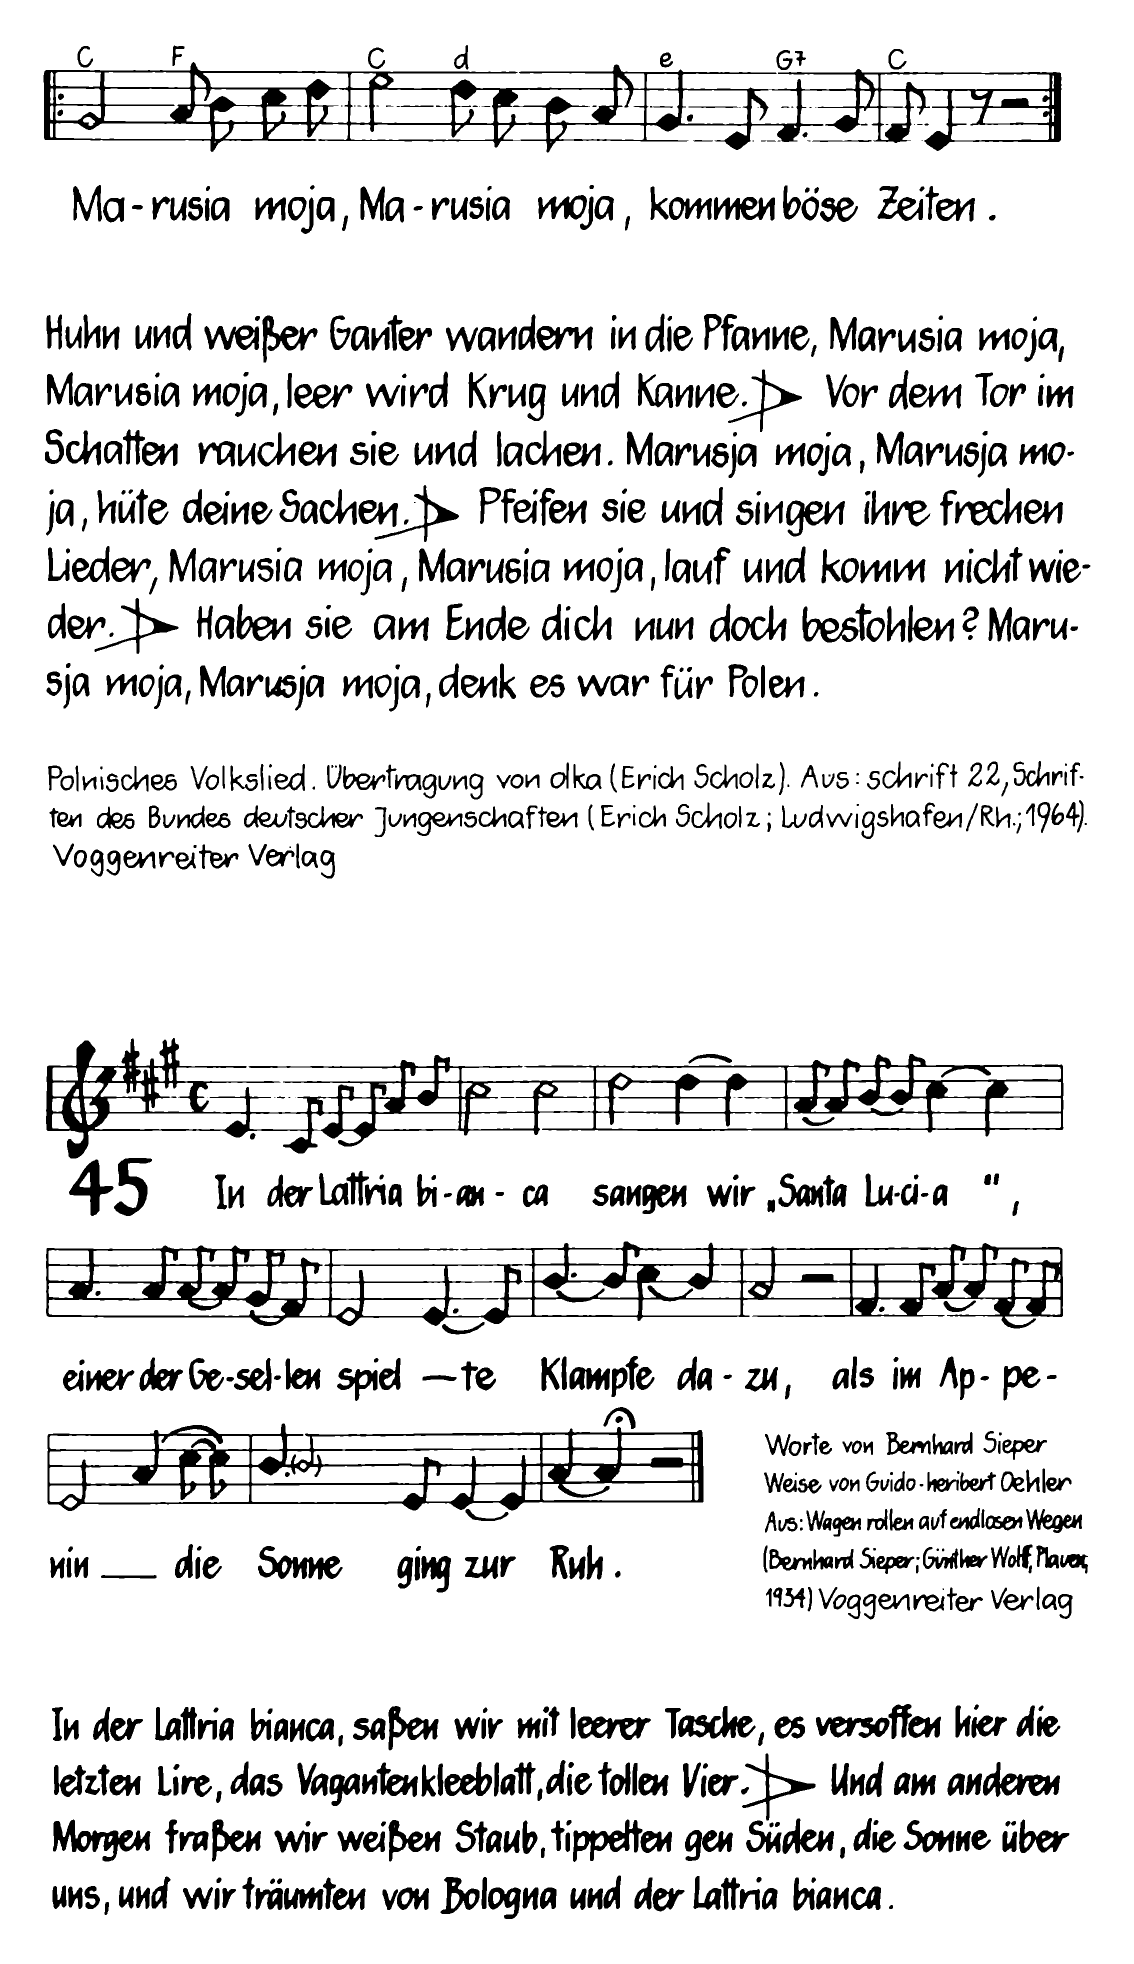 C F C d e G7 C
Ma-rusia moja, Ma-rusia moja, kommen böse Zeiten.
Huhn und weißer Ganter wandern in die Pfanne, Marusia moja,
Marusia moja, leer wird Krug und Kanne. Vor dem Tor im
Schatten rauchen sie und lachen. Marusja moja, Marusja mo-
ja, hüte deine Sachen. Pfeifen sie und singen ihre frechen
Lieder, Marusia moja, Marusia moja, lauf und komm nicht wie-
der. Haben sie am Ende dich nun doch bestohlen? Maru-
sja moja, Marusja moja, denk es war für Polen.
Polnisches Volkslied. Übertragung von olka (Erich Scholz). Aus: schrift 22, Schrif-
ten des Bundes deutscher Jungenschaften (Erich Scholz; Ludwigshafen/Rh.; 1964).
Voggenreiter Verlag
45 In der Lattria bi-an-ca sangen wir „Santa Lu-ci-a “,
einer der Ge-sel-len spiel —te Klampfe da-zu, als im Ap-pe-
nin ___ die Sonne ging zur Ruh.
Worte von Bernhard Sieper
Weise von Guido-heribert Oehler
Aus: Wagen rollen auf endlosen Wegen
(Bernhard Sieper; Günther Wolff, Plauen,
1934) Voggenreiter Verlag
In der Lattria bianca, saßen wir mit leerer Tasche, es versoffen hier die
letzten Lire, das Vagantenkleeblatt, die tollen Vier. Und am anderen
Morgen fraßen wir weißen Staub, tippelten gen Süden, die Sonne über
uns, und wir träumten von Bologna und der Lattria bianca.